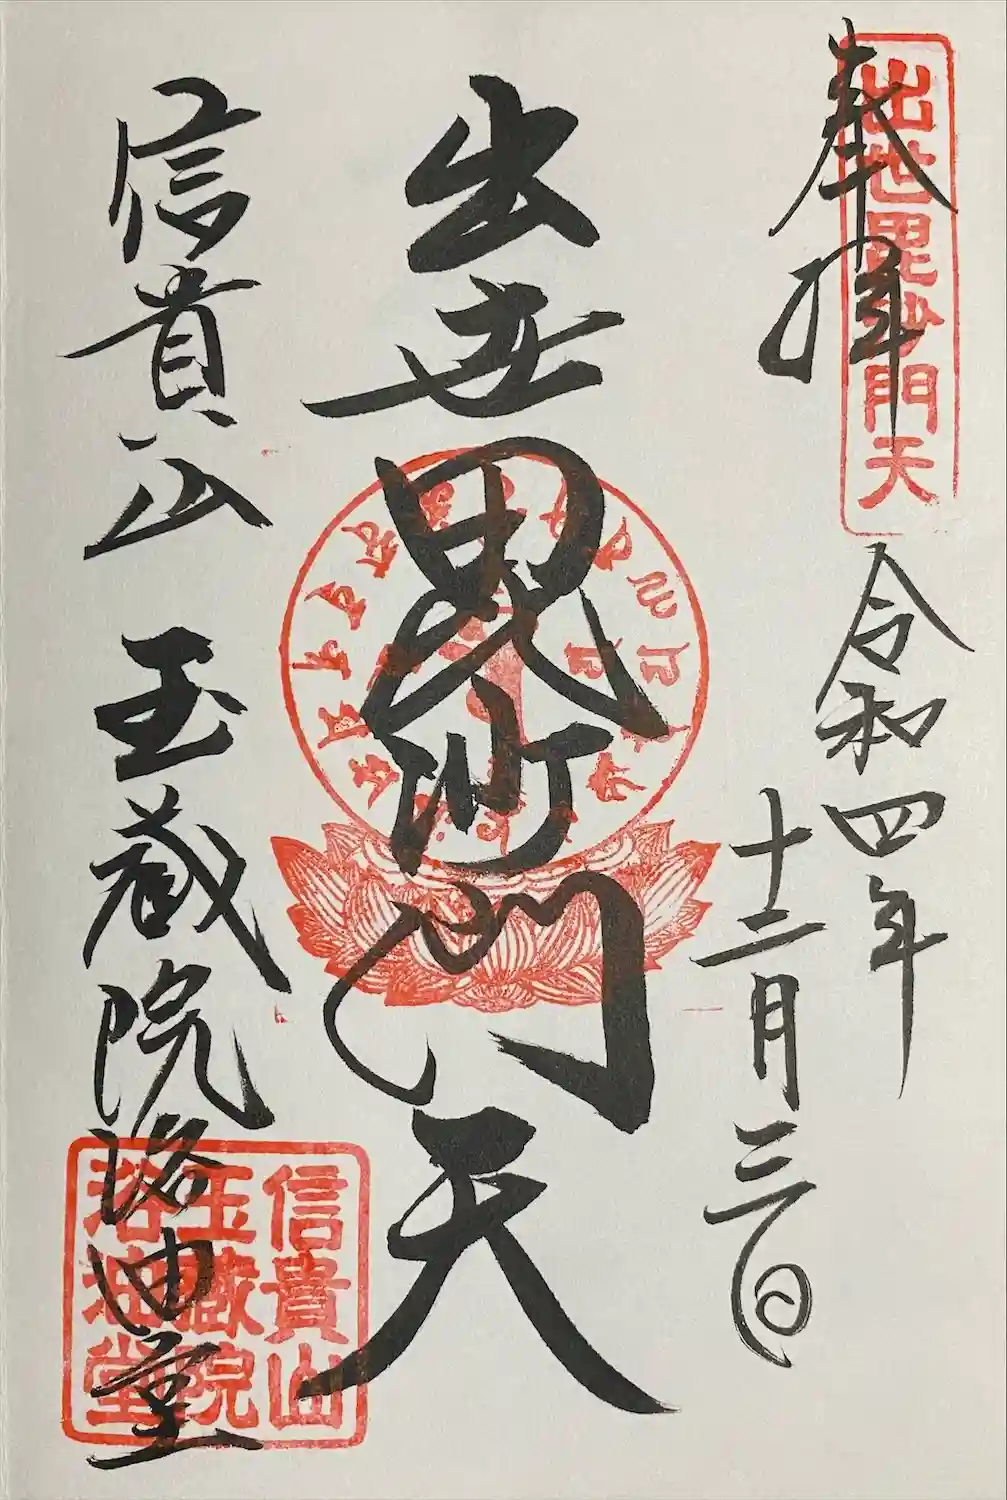 奉拝
出世毘沙門天
令和四年
十二月三日
出世毘沙門天
信貴山 玉蔵院浴油堂
信貴山
玉藏院
浴油堂